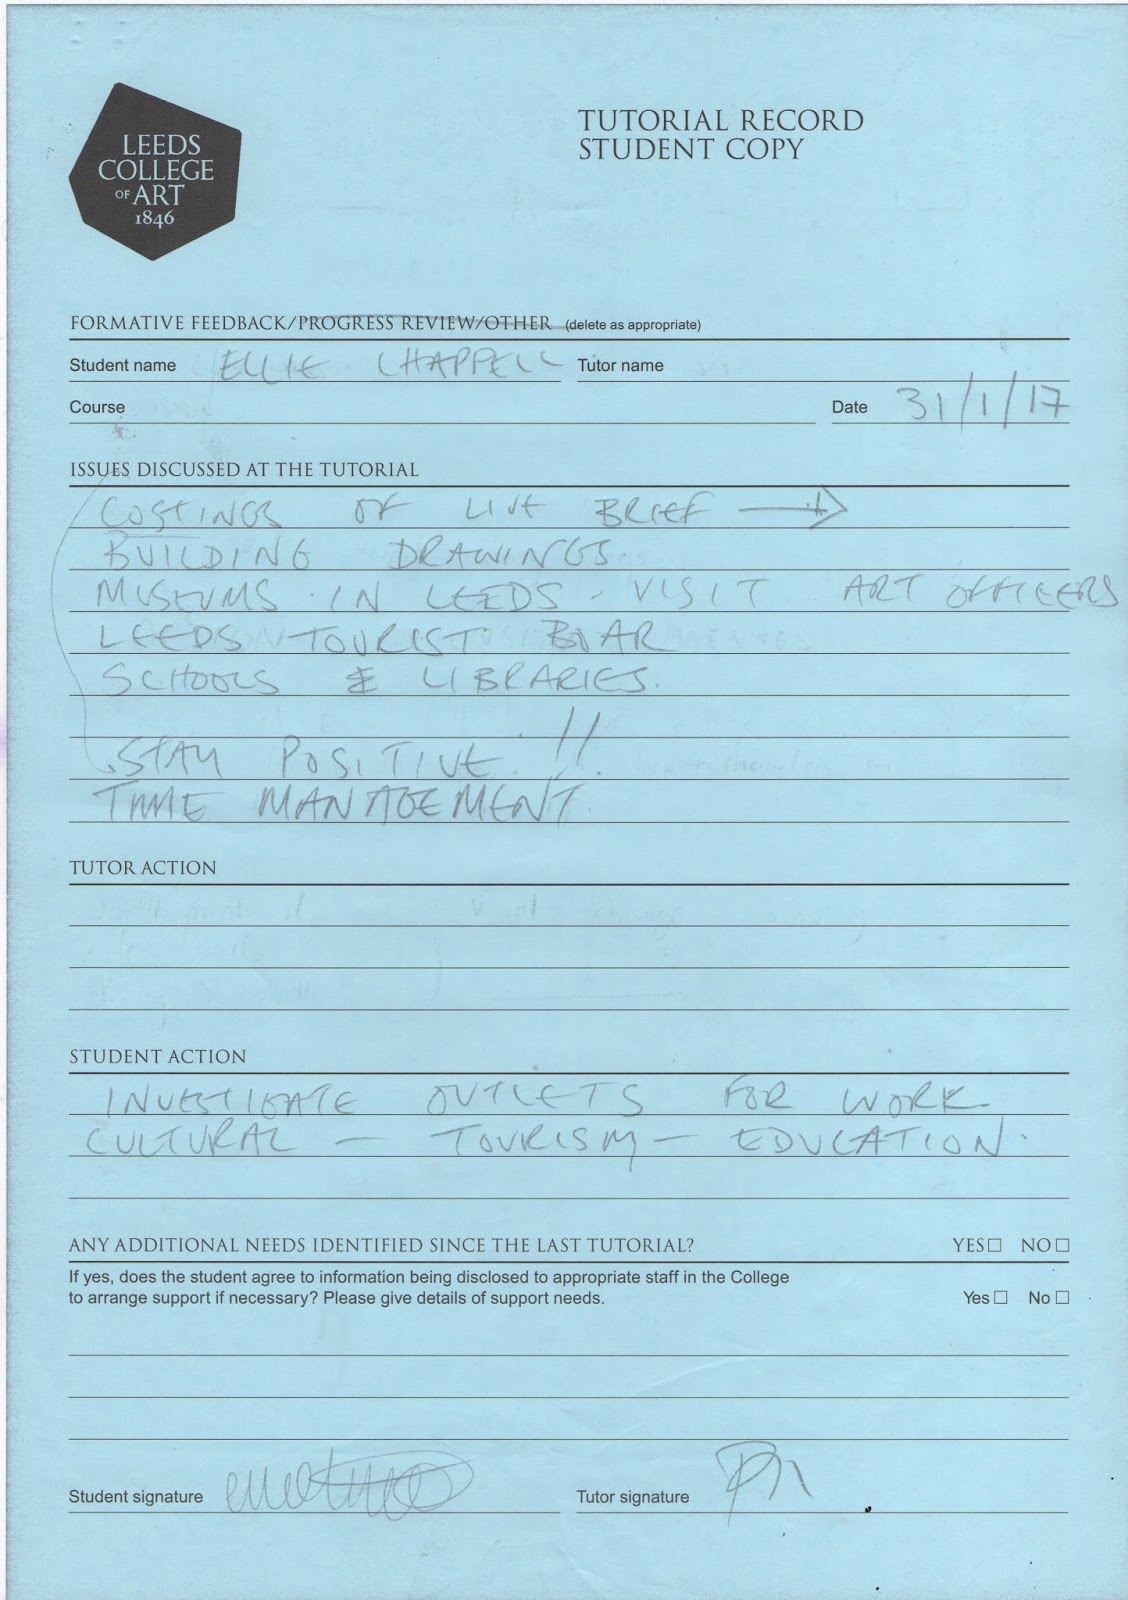 LEEDS
COLLEGE
OF ART
1846
TUTORIAL RECORD
STUDENT COPY
FORMATIVE FEEDBACK/PROGRESS REVIEW/OTHER (delete as appropriate)
Student name ELLIE CHAPPELL Tutor name
Course Date 31/1/17
ISSUES DISCUSSED AT THE TUTORIAL
COSTINGS OF LIVE BRIEF
BUILDING DRAWINGS.
MUSEUMS IN LEEDS - VISIT ART OFFICERS
LEEDS TOURIST BOAR
SCHOOLS & LIBRARIES.
STAY POSITIVE !!
TIME MANAGEMENT.
TUTOR ACTION
STUDENT ACTION
INVESTIGATE OUTLETS FOR WORK
CULTURAL - TOURISM - EDUCATION.
ANY ADDITIONAL NEEDS IDENTIFIED SINCE THE LAST TUTORIAL? YES NO
If yes, does the student agree to information being disclosed to appropriate staff in the College Yes No
to arrange support if necessary? Please give details of support needs.
Student signature Tutor signature